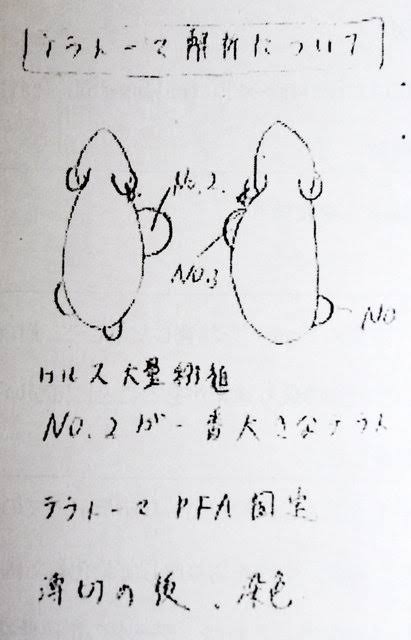 テラトーマ解析について
No.2.
No.3
No
大量移植
NO.2が一番大きなテラト
テラトーマ PFA 固定
薄切の後、染色